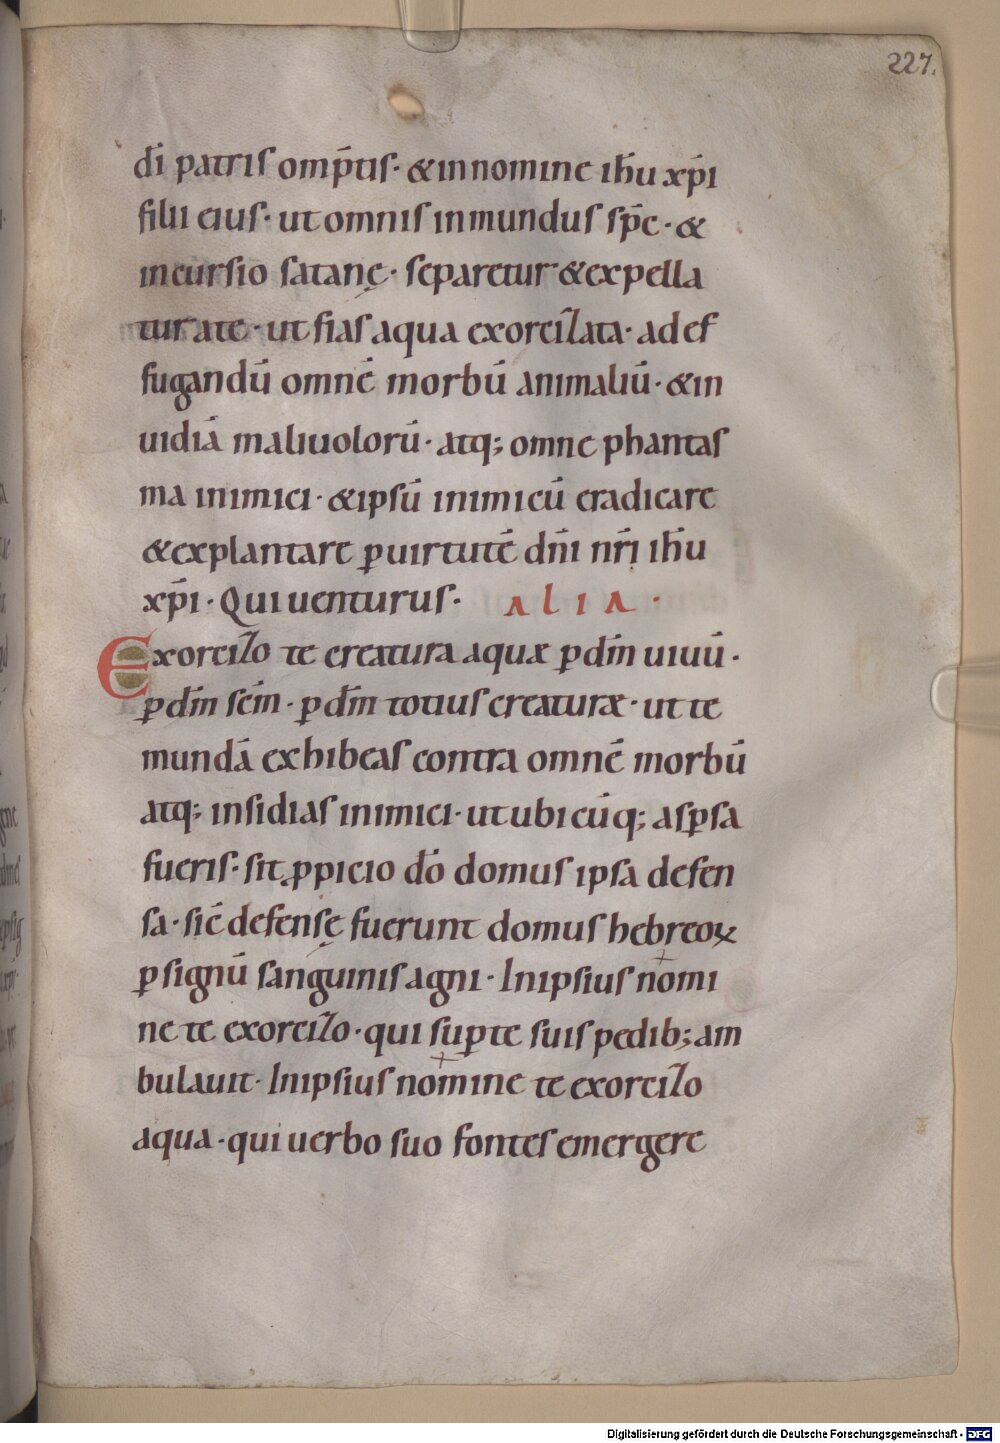 227.
dī patris omp̄tis· &innomine ihu xp̄i
filii eius· ut omnis inmundus sp̄c· &
incursio satanę· separetur &expella
tur ate· ut fias aqua exorcizata· ad ef
fugandū omnē morbū animaliū· &in
uidiā maliuolorū· atq; omne phantas
ma inimici· &ipsū inimicū eradicare
&explantare ꝑuirtutē dn̄i nr̄i ihu
xp̄i· Qui uenturus· ALIA·
Exorcizo te creatura aquæ ꝑdm̄ uiuū·
ꝑdm̄ scm̄· ꝑdm̄ totius creaturæ· ut te
mundā exhibeas contra omnē morbū
atq; insidias inimici· ut ubicūq; asꝑsa
fueris· sit ꝓpicio dō domus ipsa defen
sa· sic̄ defensę fuerunt domus hebreoꝝ
ꝑsignū sanguinis agni· Inipsius nomi
ne te exorcizo· qui suꝑte suis pedib; am
bulauit· Inipsius nomine te exorcizo
aqua· qui uerbo suo fontes emergere
Digitalisierung gefördert durch die Deutsche Forschungsgemeinschaft - DFG